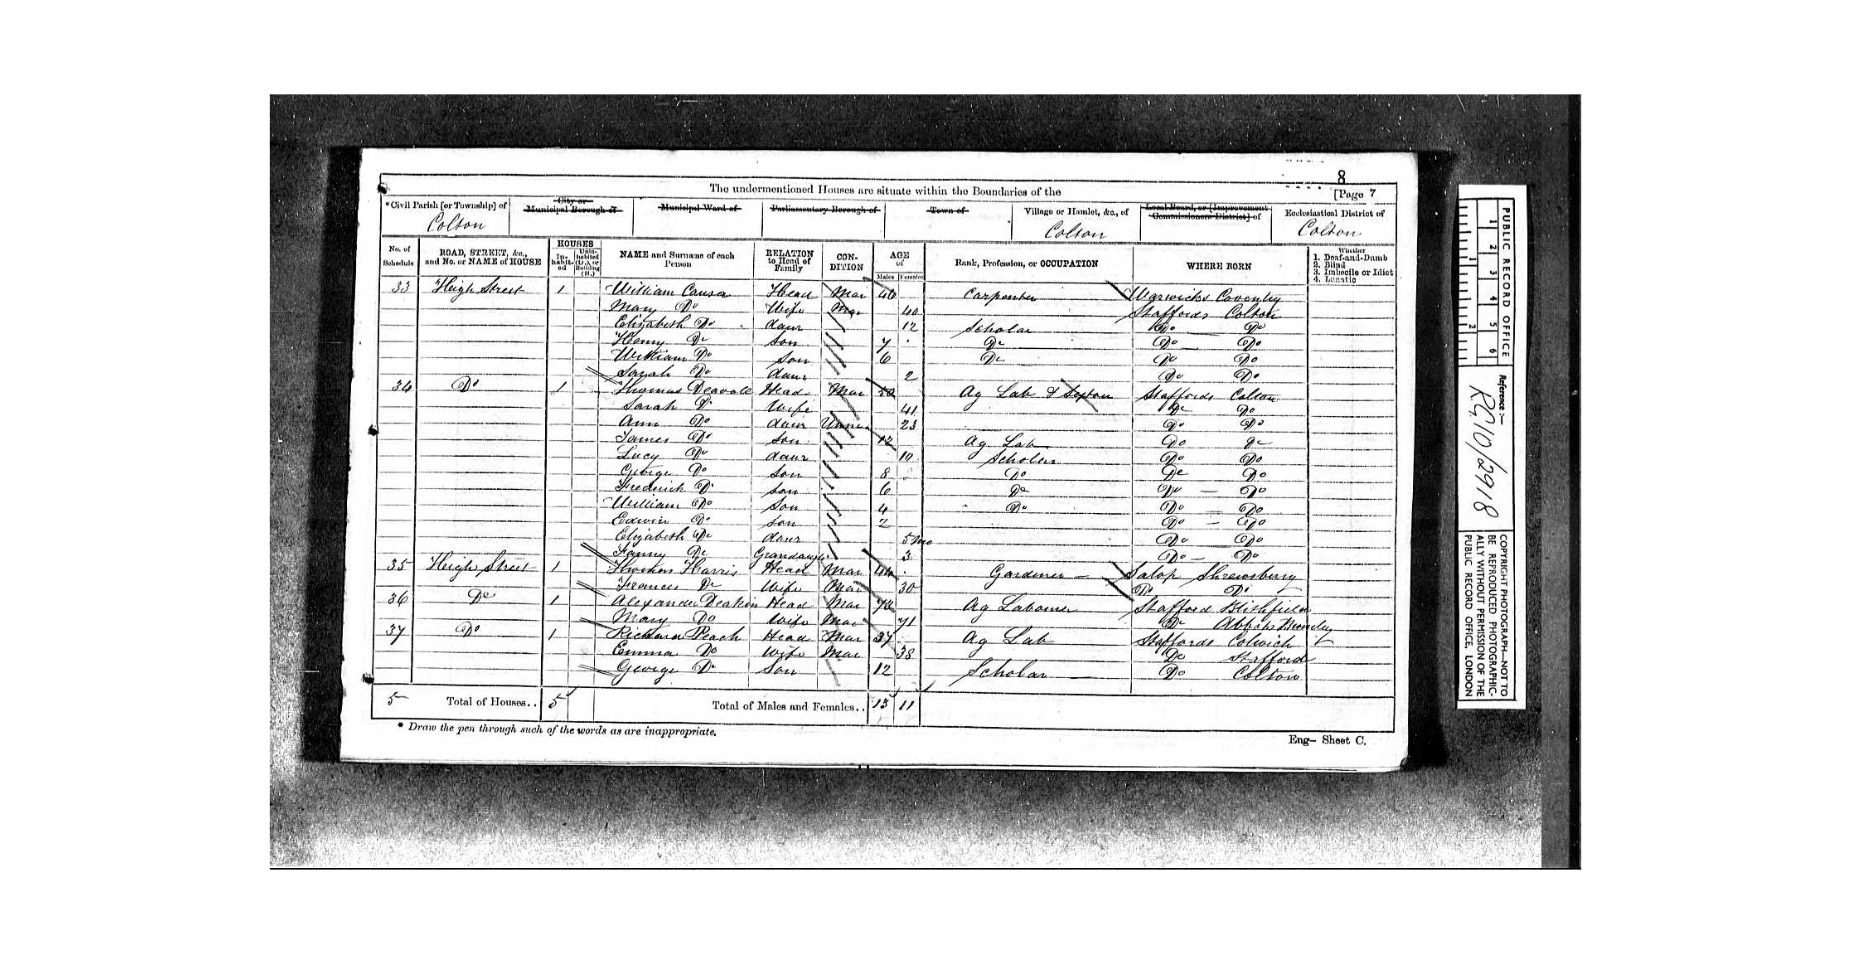 8
The undermentioned Houses are situate within the Boundaries of the
[Page 7
*Civil Parish [or Township] of
City or Municipal Borough of
Municipal Ward of
Parliamentary Borough of
Town of
Village or Hamlet, &c., of
Local Board, or [Improvement Commissioners District] of
Ecclesiastical District of
Colton
Colton
Colton
No. of Schedule
ROAD, STREET, &c., and No. or NAME of HOUSE
HOUSES
In-habit-ed
Unin-habited (U.), or Building (B.)
NAME and Surname of each Person
RELATION to Head of Family
CON-DITION
AGE of
Males Females
Rank, Profession, or OCCUPATION
WHERE BORN
Whether
1. Deaf-and-Dumb
2. Blind
3. Imbecile or Idiot
4. Lunatic
33 High Street 1 William Head Mar 46 Carpenter Warwicks Coventry
Mary Do Wife Mar 40 Staffords Colton
Elizabeth Do daur 12 Scholar Do Do
Henry Do Son 7 Do Do Do
William Do Son 6 Do Do Do
Sarah Do daur 2 Do Do
34 Do 1 Thomas Deavall Head Mar Ag Lab & Sexton Staffords Colton
Sarah Do Wife 41 Do Do
Ann Do daur Unm 23 Do Do
James Do Son 12 Ag Lab Do Do
Lucy Do daur 10 Scholar Do Do
George Do Son 8 Do Do Do
Fredrick Do Son 6 Do Do Do
William Do Son 4 Do Do Do
Edwin Do Son 2 Do Do
Elizabeth Do daur 5 mo Do Do
Fanny Do 3 Do Do
35 High Street 1 Thomas Harris Head Mar 44 Gardener Salop Shrewsbury
Frances Do Wife Mar 30 Do Do
36 Do 1 Alexander Deakin Head Mar Ag Labourer Stafford Blithfield
Mary Do Wife Mar 71 Do Abbots Bromley
37 Do 1 Richard Peach Head Mar 37 Ag Lab Staffords Colwich
Emma Do Wife Mar 38 Do Stafford
George Do Son 12 Scholar Do Colton
5 Total of Houses.. 5 Total of Males and Females.. 13 11
* Draw the pen through such of the words as are inappropriate.
Eng— Sheet C.
PUBLIC RECORD OFFICE
1 2 3 4 5 6
1 2
Reference :—
RG10/2918
COPYRIGHT PHOTOGRAPH—NOT TO
BE REPRODUCED PHOTOGRAPHIC-
ALLY WITHOUT PERMISSION OF THE
PUBLIC RECORD OFFICE, LONDON